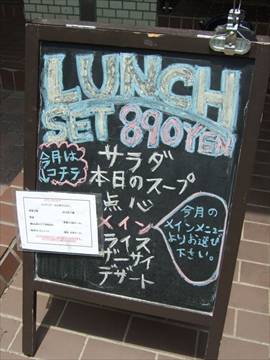 LUNCH
SET 890YEN
今月は
コチラ
サラダ
本日のスープ
点心
メイン
ライス
ザーサイ
デザート
今月の
メインメニュー
よりお選び
下さい。